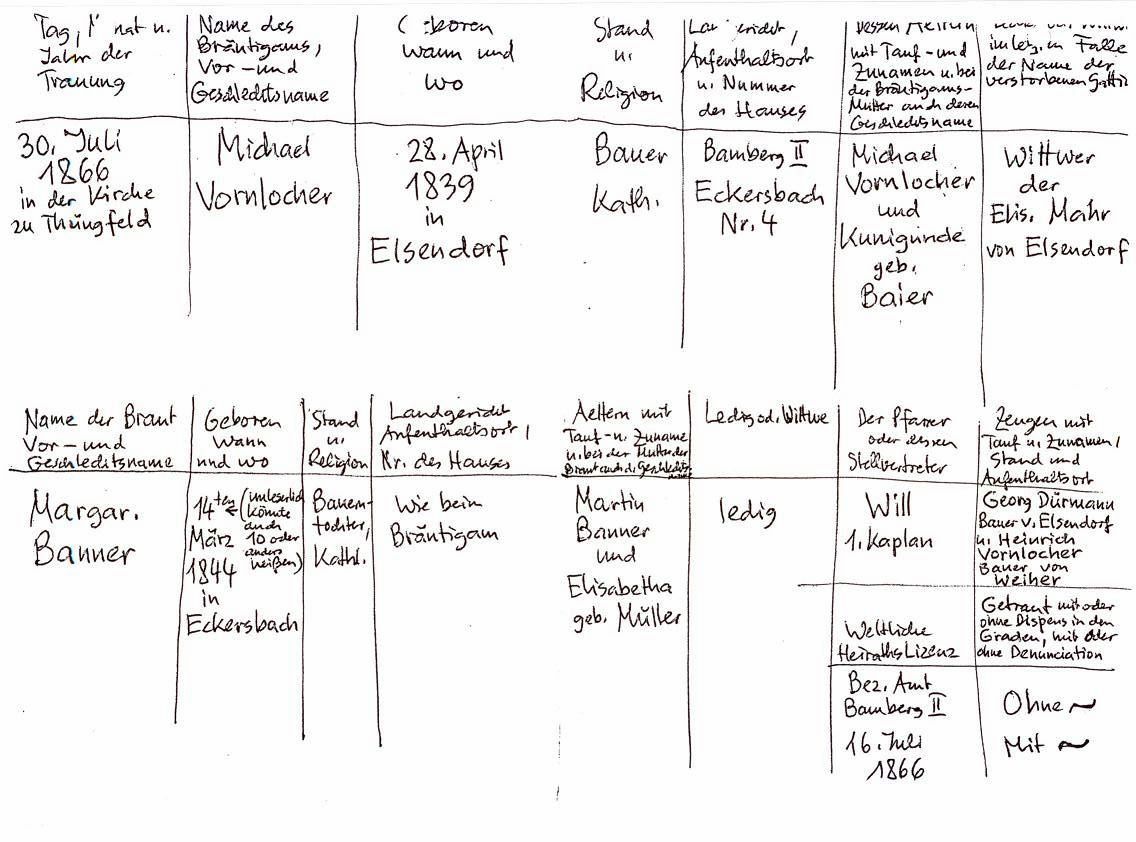 Tag, nat u.
Jahr der
Trauung
Name des
Bräutigams,
Vor- und
Geschlechtsname
boren
wann und
wo
Stand
u.
Religion
Aufenthaltsort
u. Nummer
des Hauses
Dessen Aeltern
mit Tauf- und
Zunamen u. bei
der Bräutigams-
Mutter auch deren
Geschlechtsname
im letz. en Falle
der Name der
verstorbenen Gattin
30. Juli
1866
in der Kirche
zu Thüngfeld
Michael
Vornlocher
28. April
1839
in
Elsendorf
Bauer
Kath.
Bamberg II
Eckersbach
Nr. 4
Michael
Vornlocher
und
Kunigunde
geb.
Baier
Wittwer
der
Elis. Mahr
von Elsendorf
Name der Braut
Vor- und
Geschlechtsname
Geboren
wann
und wo
Stand
u.
Religion
Landgericht
Aufenthaltsort,
Nr. des Hauses
Aeltern mit
Tauf- u. Zuname
u. bei der Mutter der
Braut auch d. Geschlechts-
name
Ledig od. Wittwe
Der Pfarrer
oder dessen
Stellvertreter
Zeugen mit
Tauf u. Zunamen,
Stand und
Aufenthaltsort
Margar.
Banner
14ten (unleserlich
könnte
auch
März 10 oder
anders
1844 heißen)
in
Eckersbach
Bauern-
tochter,
Kathl.
Wie beim
Bräutigam
Martin
Banner
und
Elisabetha
geb. Müller
ledig
Will
1. Kaplan
Georg Dürmann
Bauer v. Elsendorf
u. Heinrich
Vornlocher
Bauer von
Weiher
Weltliche
Heiraths Lizenz
Getraut mit oder
ohne Dispens in den
Graden, mit oder
ohne Denunciation
Bez. Amt
Bamberg II
16. Juli
1866
Ohne ~
Mit ~